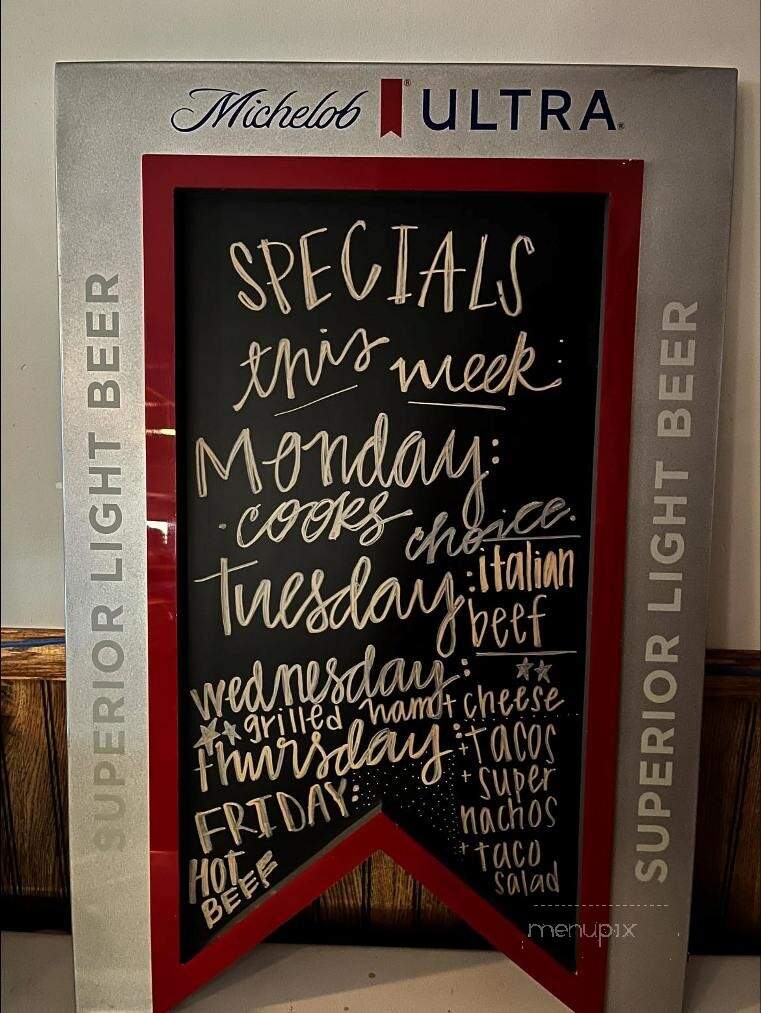 Michelob ULTRA
SUPERIOR LIGHT BEER
SUPERIOR LIGHT BEER
SPECIALS
this week:
Monday:
·cooks choice.
Tuesday: italian
beef
wednesday:
grilled ham + cheese
thursday: + tacos
+ super
nachos
+ taco
salad
FRIDAY:
HOT
BEEF
menupix